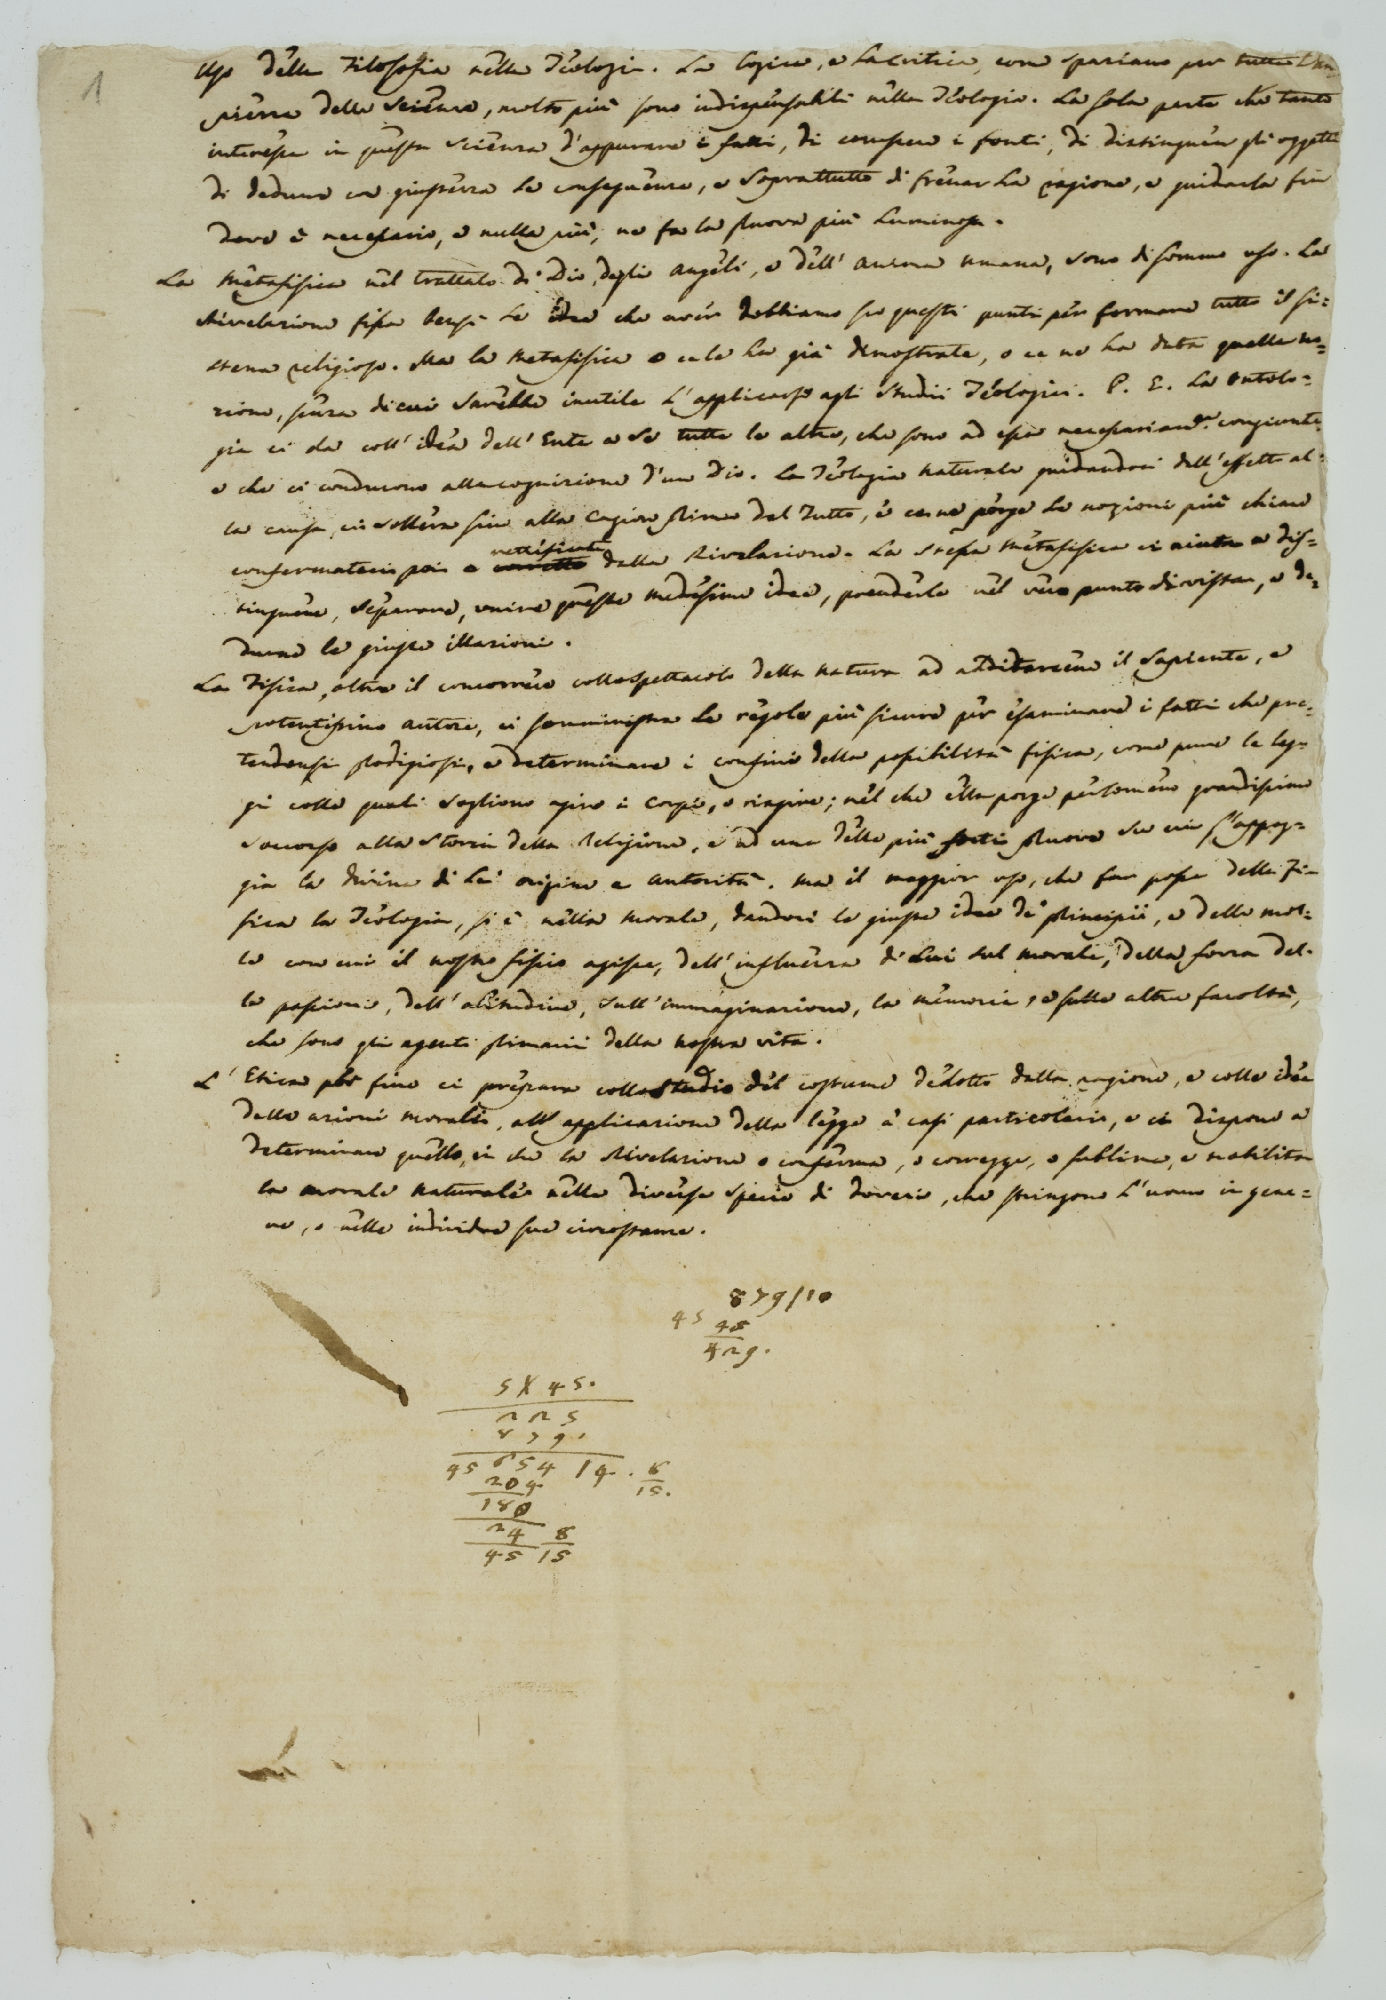 1
Uso della Filosofia nella Teologia. La Logica, e la Critica, come spaziano per tutta l'am=
piezza delle Scienze, molto più sono indispensabili nella Teologia. La sola parte che tanto
interessa in questa Scienza d'appurare i fatti, di conoscere i fonti, di distinguere gli oggetti
di dedurne con giustezza le conseguenze, e soprattutto di frenar la ragione, e guidarla fin
dove è necessario, e nulla più, ne fa la pruova più luminosa.
La Metafisica nel trattato di Dio, degli Angeli, e dell'anima umana, sono di sommo uso. La
Rivelazione fissa bensì le idee che aver dobbiamo su questi punti per formare tutto il si=
stema religioso. Ma la Metafisica o ce le ha già dimostrate, o ce ne ha data quella no=
zione, senza di cui sarebbe inutile l'applicarsi agli studii Teologici. P. E. La Ontolo=
gia ci da coll'idea dell'Ente a se tutte le altre, che sono ad essa necessariam.te congiunte
e che ci conducono alla cognizione d'un Dio. La Teologia naturale guidandoci dall'effetto al=
la causa, ci solleva sin alla Cagion Prima del Tutto, e ce ne porge le nozioni più chiare
confermateci poi e rettificate dalla Rivelazione. La stessa Metafisica ci aiuta a dis=
tinguere, separare, unire queste medesime idee, prenderle nel vero punto di vista, e de=
durne le giuste illazioni.
La Fisica, oltre il concorrere collo spettacolo della natura ad additarcene il Sapiente, e
potentissimo autore, ci somministra le regole più sicure per esaminare i fatti che pre=
tendensi prodigiosi, e determinare i confini della possibilità fisica, come pure le leg=
gi colle quali sogliono agire i corpi, o reagire; nel che ella porge perlomeno grandissimo
soccorso alla Storia della Religione, e ad una delle più forti pruove su cui s'appog=
gia la divina di Lei origine e autorità. Ma il maggior uso, che far possa della Fi=
sica la Teologia, si è nella morale, dandoci le giuste idee de' principii, e delle mol=
le con cui il nostro fisico agisce, dell'influenza di Lui sul morale, della forza del=
le passioni, dell'abitudine, sull'immaginazione, la memoria, e sulle altre facoltà,
che sono gli agenti primarii della nostra vita.
L'Etica per fine ci prepara collo studio del costume dedotto dalla ragione, e colle idee
delle azioni morali, all'applicazione della legge a' casi particolari, e ci dispone a
determinare quello, in che la Rivelazione o conferma, o corregge, o sublima, e nobilita
la morale naturale nelle diverse specie di doveri, che stringono l'uomo in gene=
re, o nelle individue sue circostanze.
879/10
45 45
429.
5 X 45.
225
879.
45 654 14. 8
15.
204
180
24 8
45 15